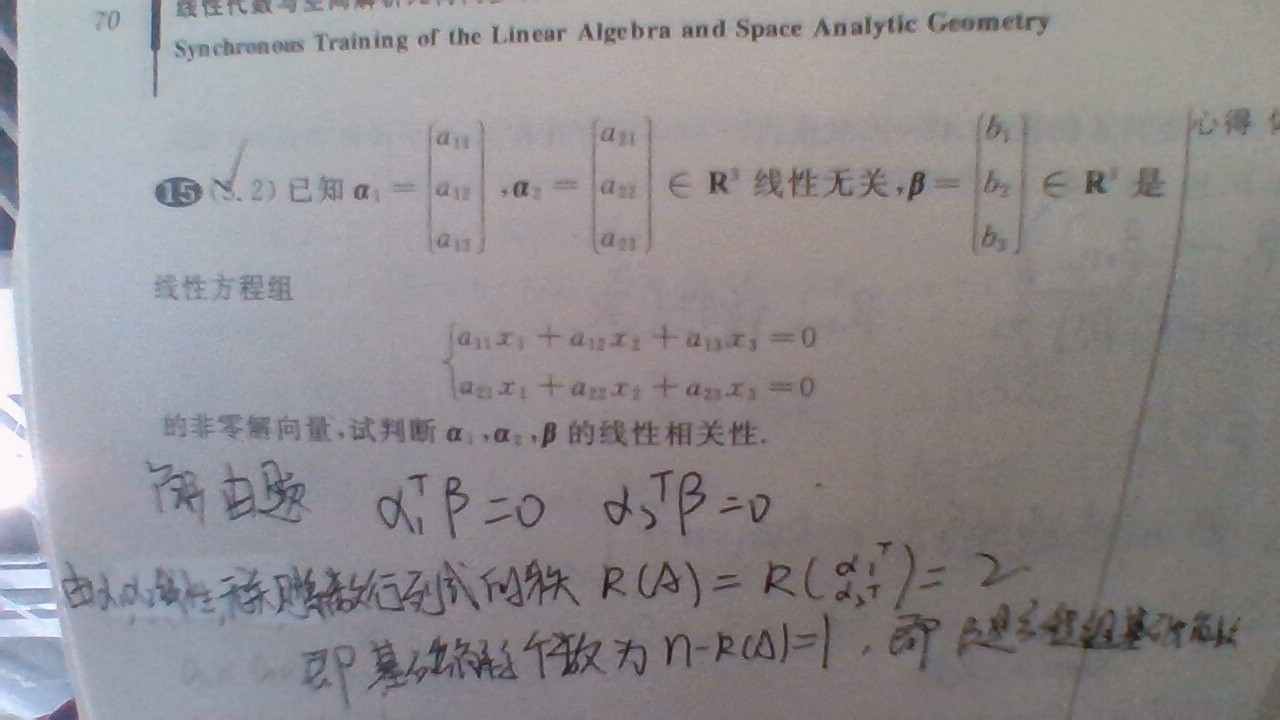 70
线性代数与空间解析几何
Synchronous Training of the Linear Algebra and Space Analytic Geometry
心得
15 (3.2) 已知 α₁ = [a₁₁ a₁₂ a₁₃], α₂ = [a₂₁ a₂₂ a₂₃] ∈ R³ 线性无关, β = [b₁ b₂ b₃] ∈ R³ 是
线性方程组
{a₁₁x₁ + a₁₂x₂ + a₁₃x₃ = 0
a₂₁x₁ + a₂₂x₂ + a₂₃x₃ = 0
的非零解向量,试判断 α₁,α₂,β 的线性相关性.
解 由题 α₁ᵀβ = 0 α₂ᵀβ = 0
线性无关 则系数行列式的秩 R(A) = R(α₁ᵀ α₂ᵀ) = 2
即基础解系个数为 n-R(A)=1 . 即